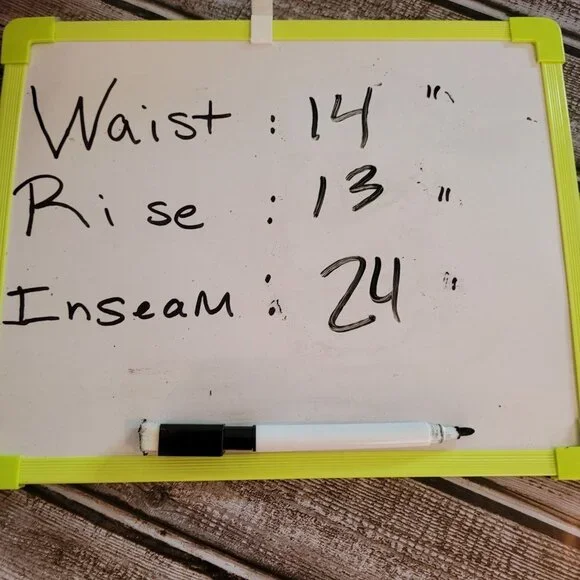 Waist : 14 "
Rise : 13 "
Inseam : 24 "